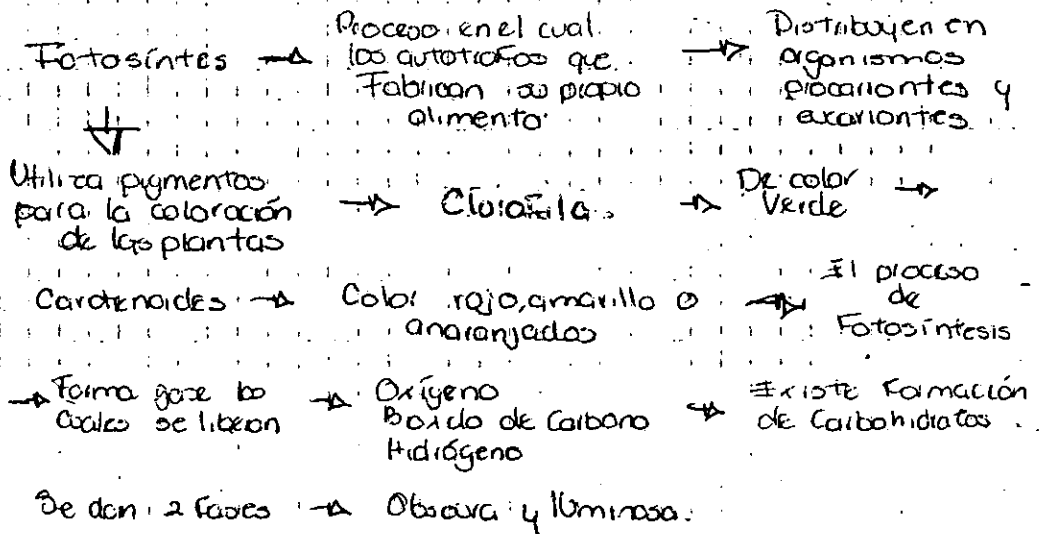 Fotosíntes → Proceso en el cual los autotrofos que Fabrican su propio alimento → Distribuyen en organismos procariontes y eucariontes
Utiliza pigmentos para la coloración de las plantas → Clorofila → De color Verde →
Carotenoides → Color rojo, amarillo o anaranjados → El proceso de Fotosíntesis
→ Forma gase los cuales se liberan → Oxígeno Boxido de Carbono Hidrógeno → Existe Formación de Carbohidratos.
Se dan 2 Fases → Obscura y luminosa.